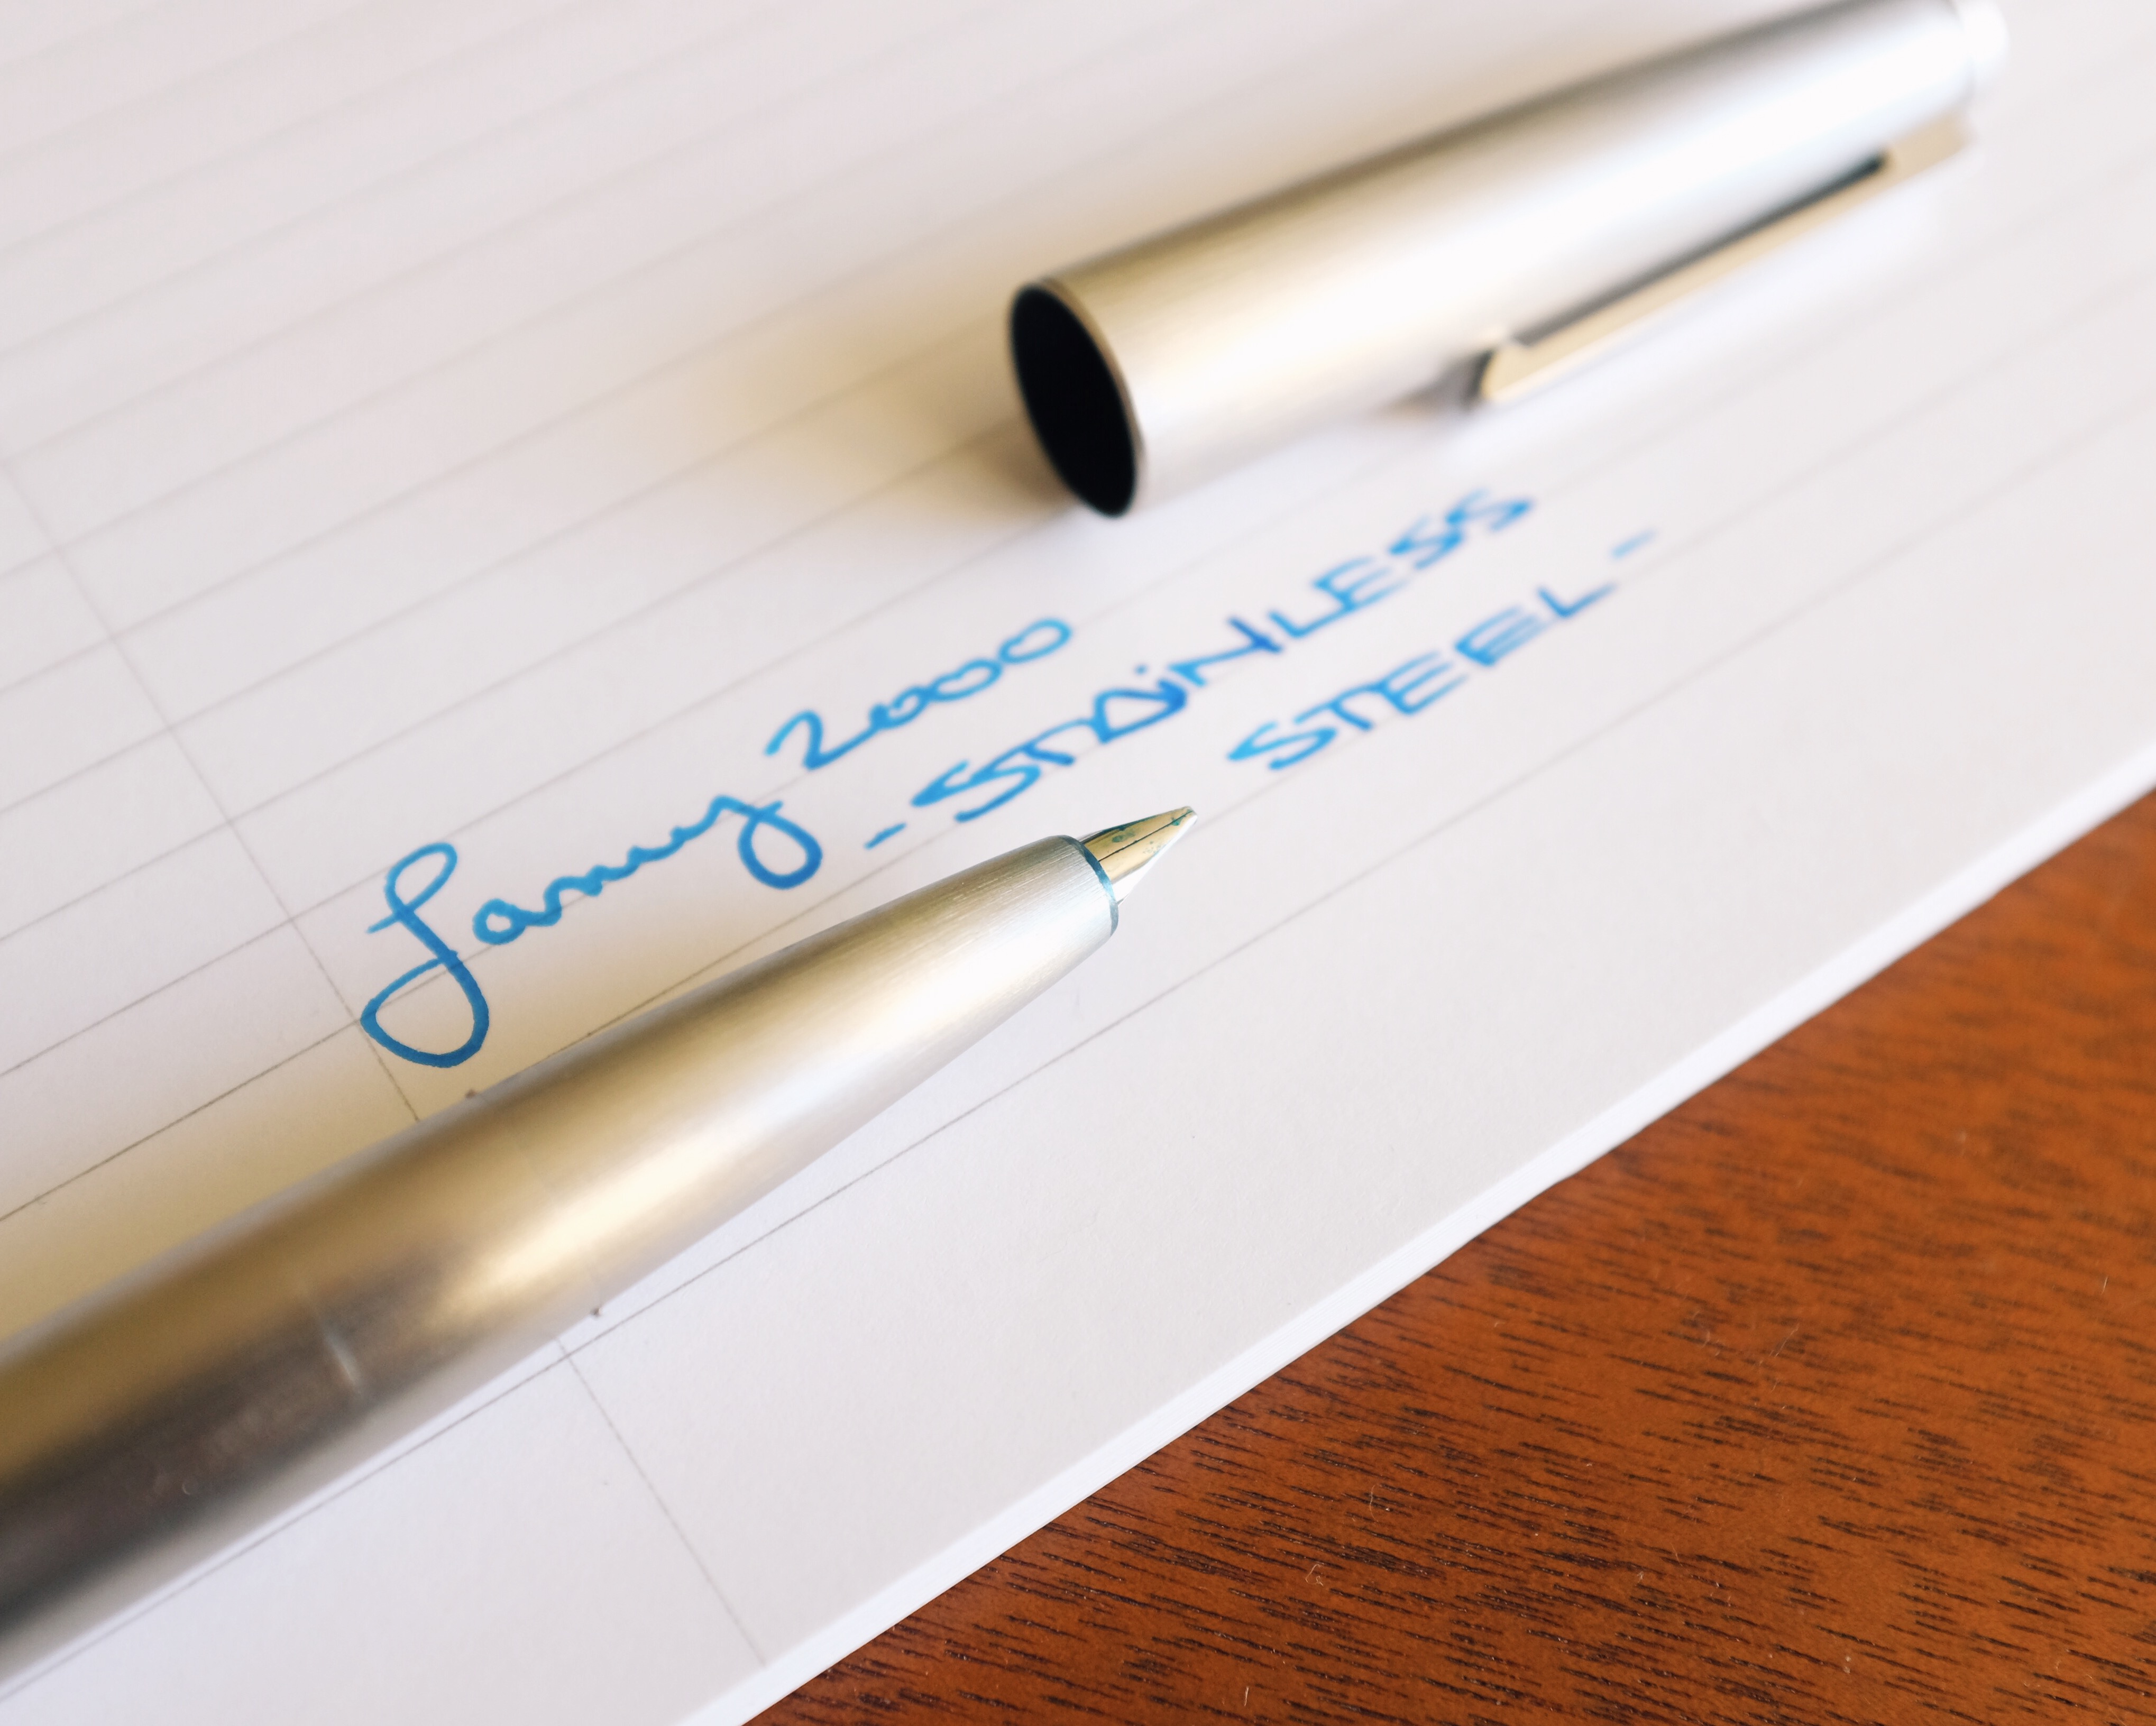 Lamy 2000
- STAiNLESS
STEEL -